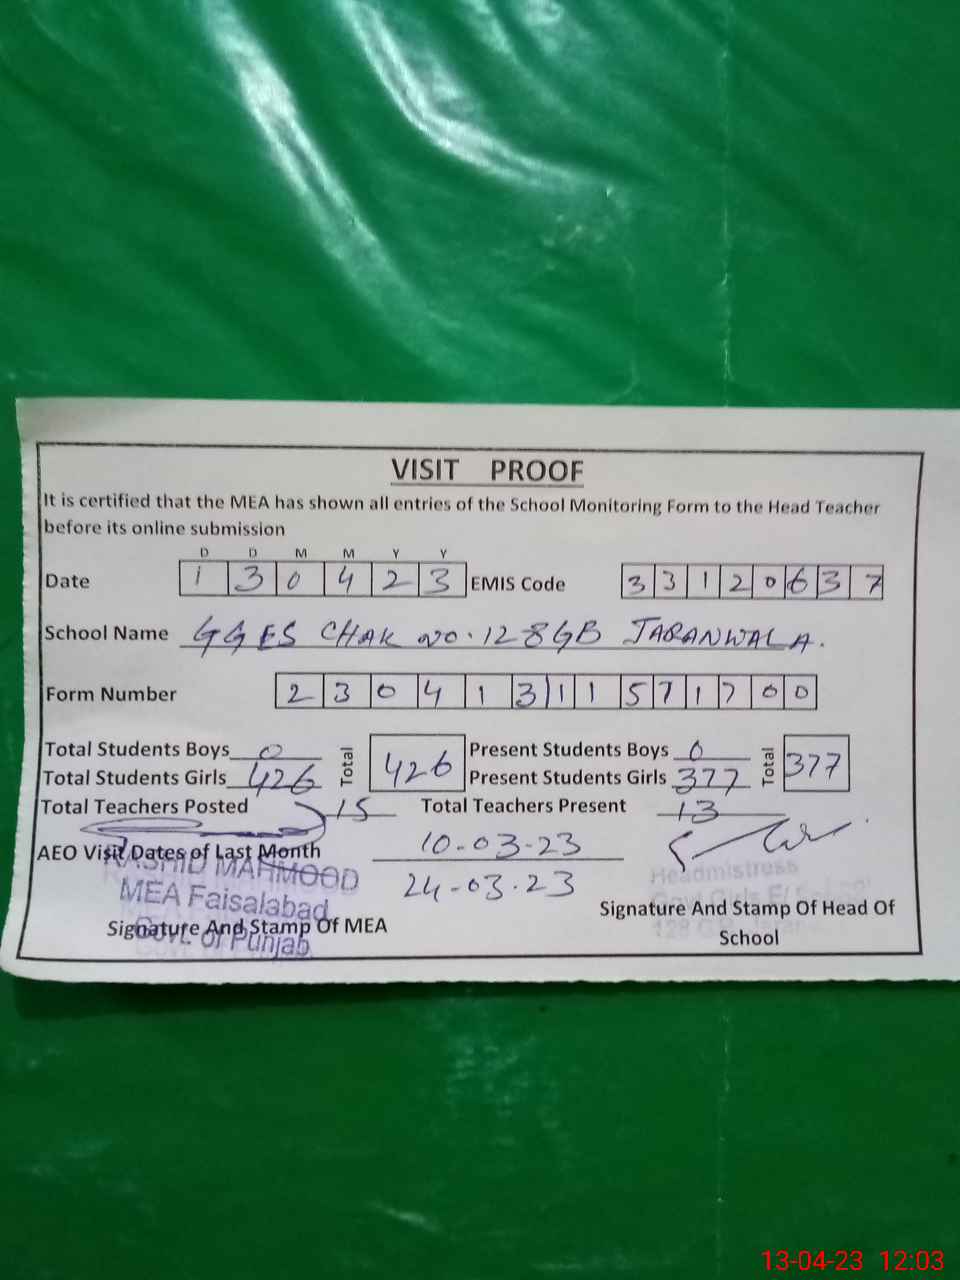 VISIT PROOF
It is certified that the MEA has shown all entries of the School Monitoring Form to the Head Teacher
before its online submission
D D M M Y Y
Date 1 3 0 4 2 3 EMIS Code 3 3 1 2 0 6 3 7
School Name GGES CHAK NO. 128GB JARANWALA.
Form Number 2 3 0 4 1 3 1 1 5 7 1 7 0 0
Total Students Boys 0 Total 426 Present Students Boys 0 Total 377
Total Students Girls 426 Present Students Girls 377
Total Teachers Posted 15 Total Teachers Present 13
AEO Visit Dates of Last Month 10-03-23
24-03-23
RASHID MAHMOOD
MEA Faisalabad
Govt. of Punjab
Signature And Stamp Of MEA
Headmistress
Govt Girls E/ School
128 G.B.
Signature And Stamp Of Head Of
School
13-04-23 12:03